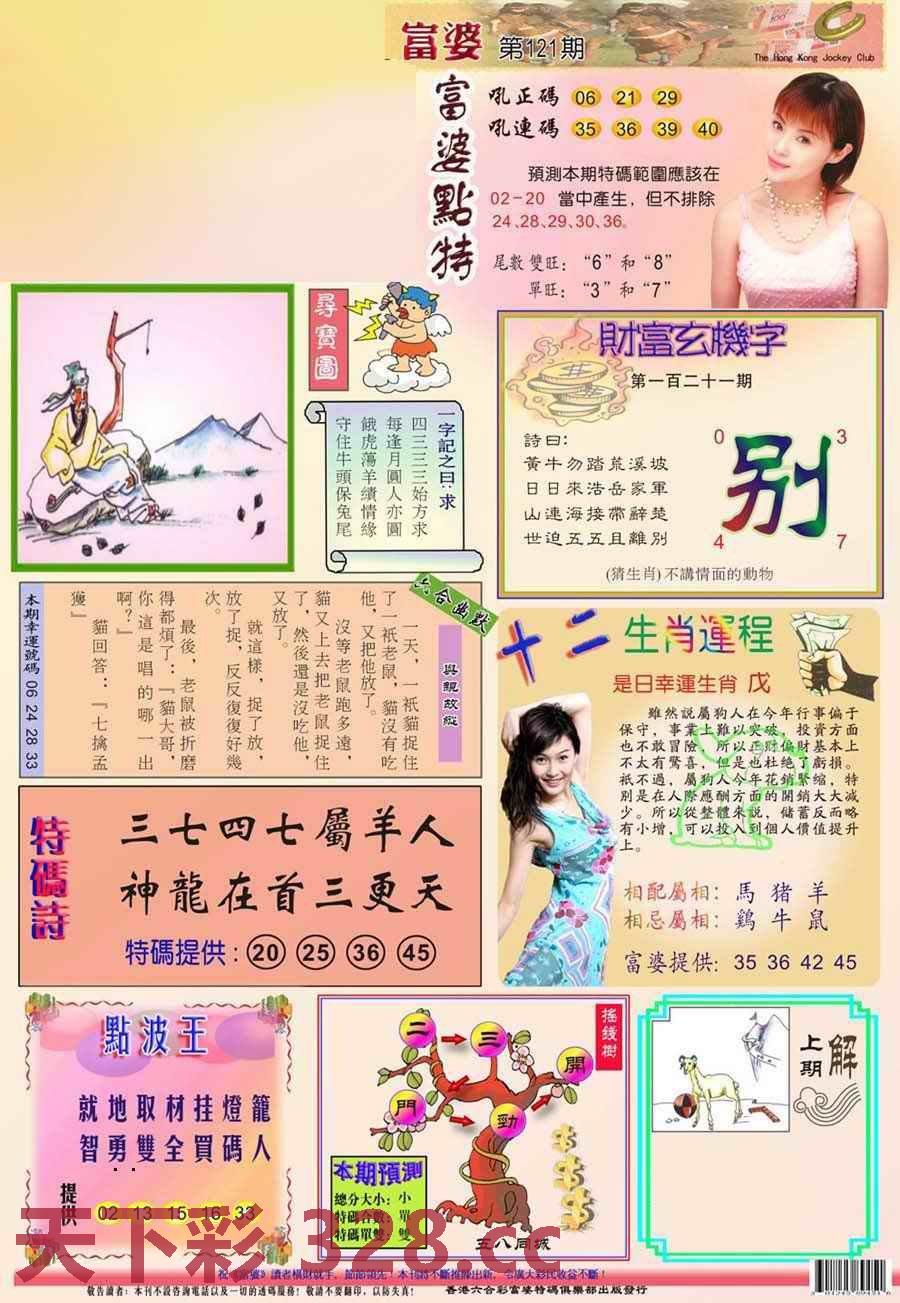 富婆 第121期
The Hong Kong Jockey Club
富婆點特
吼正碼 06 21 29
吼連碼 35 36 39 40
預測本期特碼範圍應該在
02-20 當中產生，但不排除
24、28、29、30、36。
尾數雙旺：“6”和“8”
單旺：“3”和“7”
尋寶圖
一字記之曰：求
四三三三始方求
每逢月圓人亦圓
餓虎蕩羊績情緣
守住牛頭保兔尾
財富玄機字
第一百二十一期
詩曰：
黃牛勿踏荒溪坡
日日來浩岳家軍
山連海接帶辭楚
世迫五五且離別
0 3
别
4 7
(猜生肖)不講情面的動物
六合幽默
與親故縱
一天，一衹貓捉住
了一衹老鼠，貓沒有吃
他，又把他放了。
沒等老鼠跑多遠，
貓又上去把老鼠捉住
了，然後還是沒吃他，
又放了。
就這樣，捉了放，
放了捉，反反復復好幾
次。
最後，老鼠被折磨
得都煩了：『貓大哥，
你這是唱的哪一出
啊？』
貓回答：『七擒孟
獲』
本期幸運號碼 06 24 28 33
十二生肖運程
是日幸運生肖 戊
雖然說屬狗人在今年行事偏于
保守，事業上難以突破，投資方面
也不敢冒險，所以正財偏財基本上
不太有驚喜，但是也杜绝了虧損。
衹不過，屬狗人今年花銷緊缩，特
別是在人際應酬方面的開銷大大減
少。所以從整體來說，儲蓄反而略
有小增，可以投入到個人價值提升
上。
相配屬相：馬 豬 羊
相忌屬相：鷄 牛 鼠
富婆提供：35 36 42 45
特碼詩
三七四七屬羊人
神龍在首三更天
特碼提供：20 25 36 45
點波王
就地取材挂燈籠
智勇雙全買碼人
提供 02 13 15 16 33
搖錢樹
二 三 開
門 勁
本期預測
總分大小：小
特碼合數：單
特碼單雙：雙
五八同城
上期解
天下彩 328.cc
祝《富婆》讀者橫財就手，節節領先！本刊將不斷推陳出新，令廣大彩民收益不斷！
敬告讀者：本刊不設咨詢電話以及一切的透碼服務！敬請不要翻印，以防失真！
香港六合彩富婆特碼俱樂部出版發行